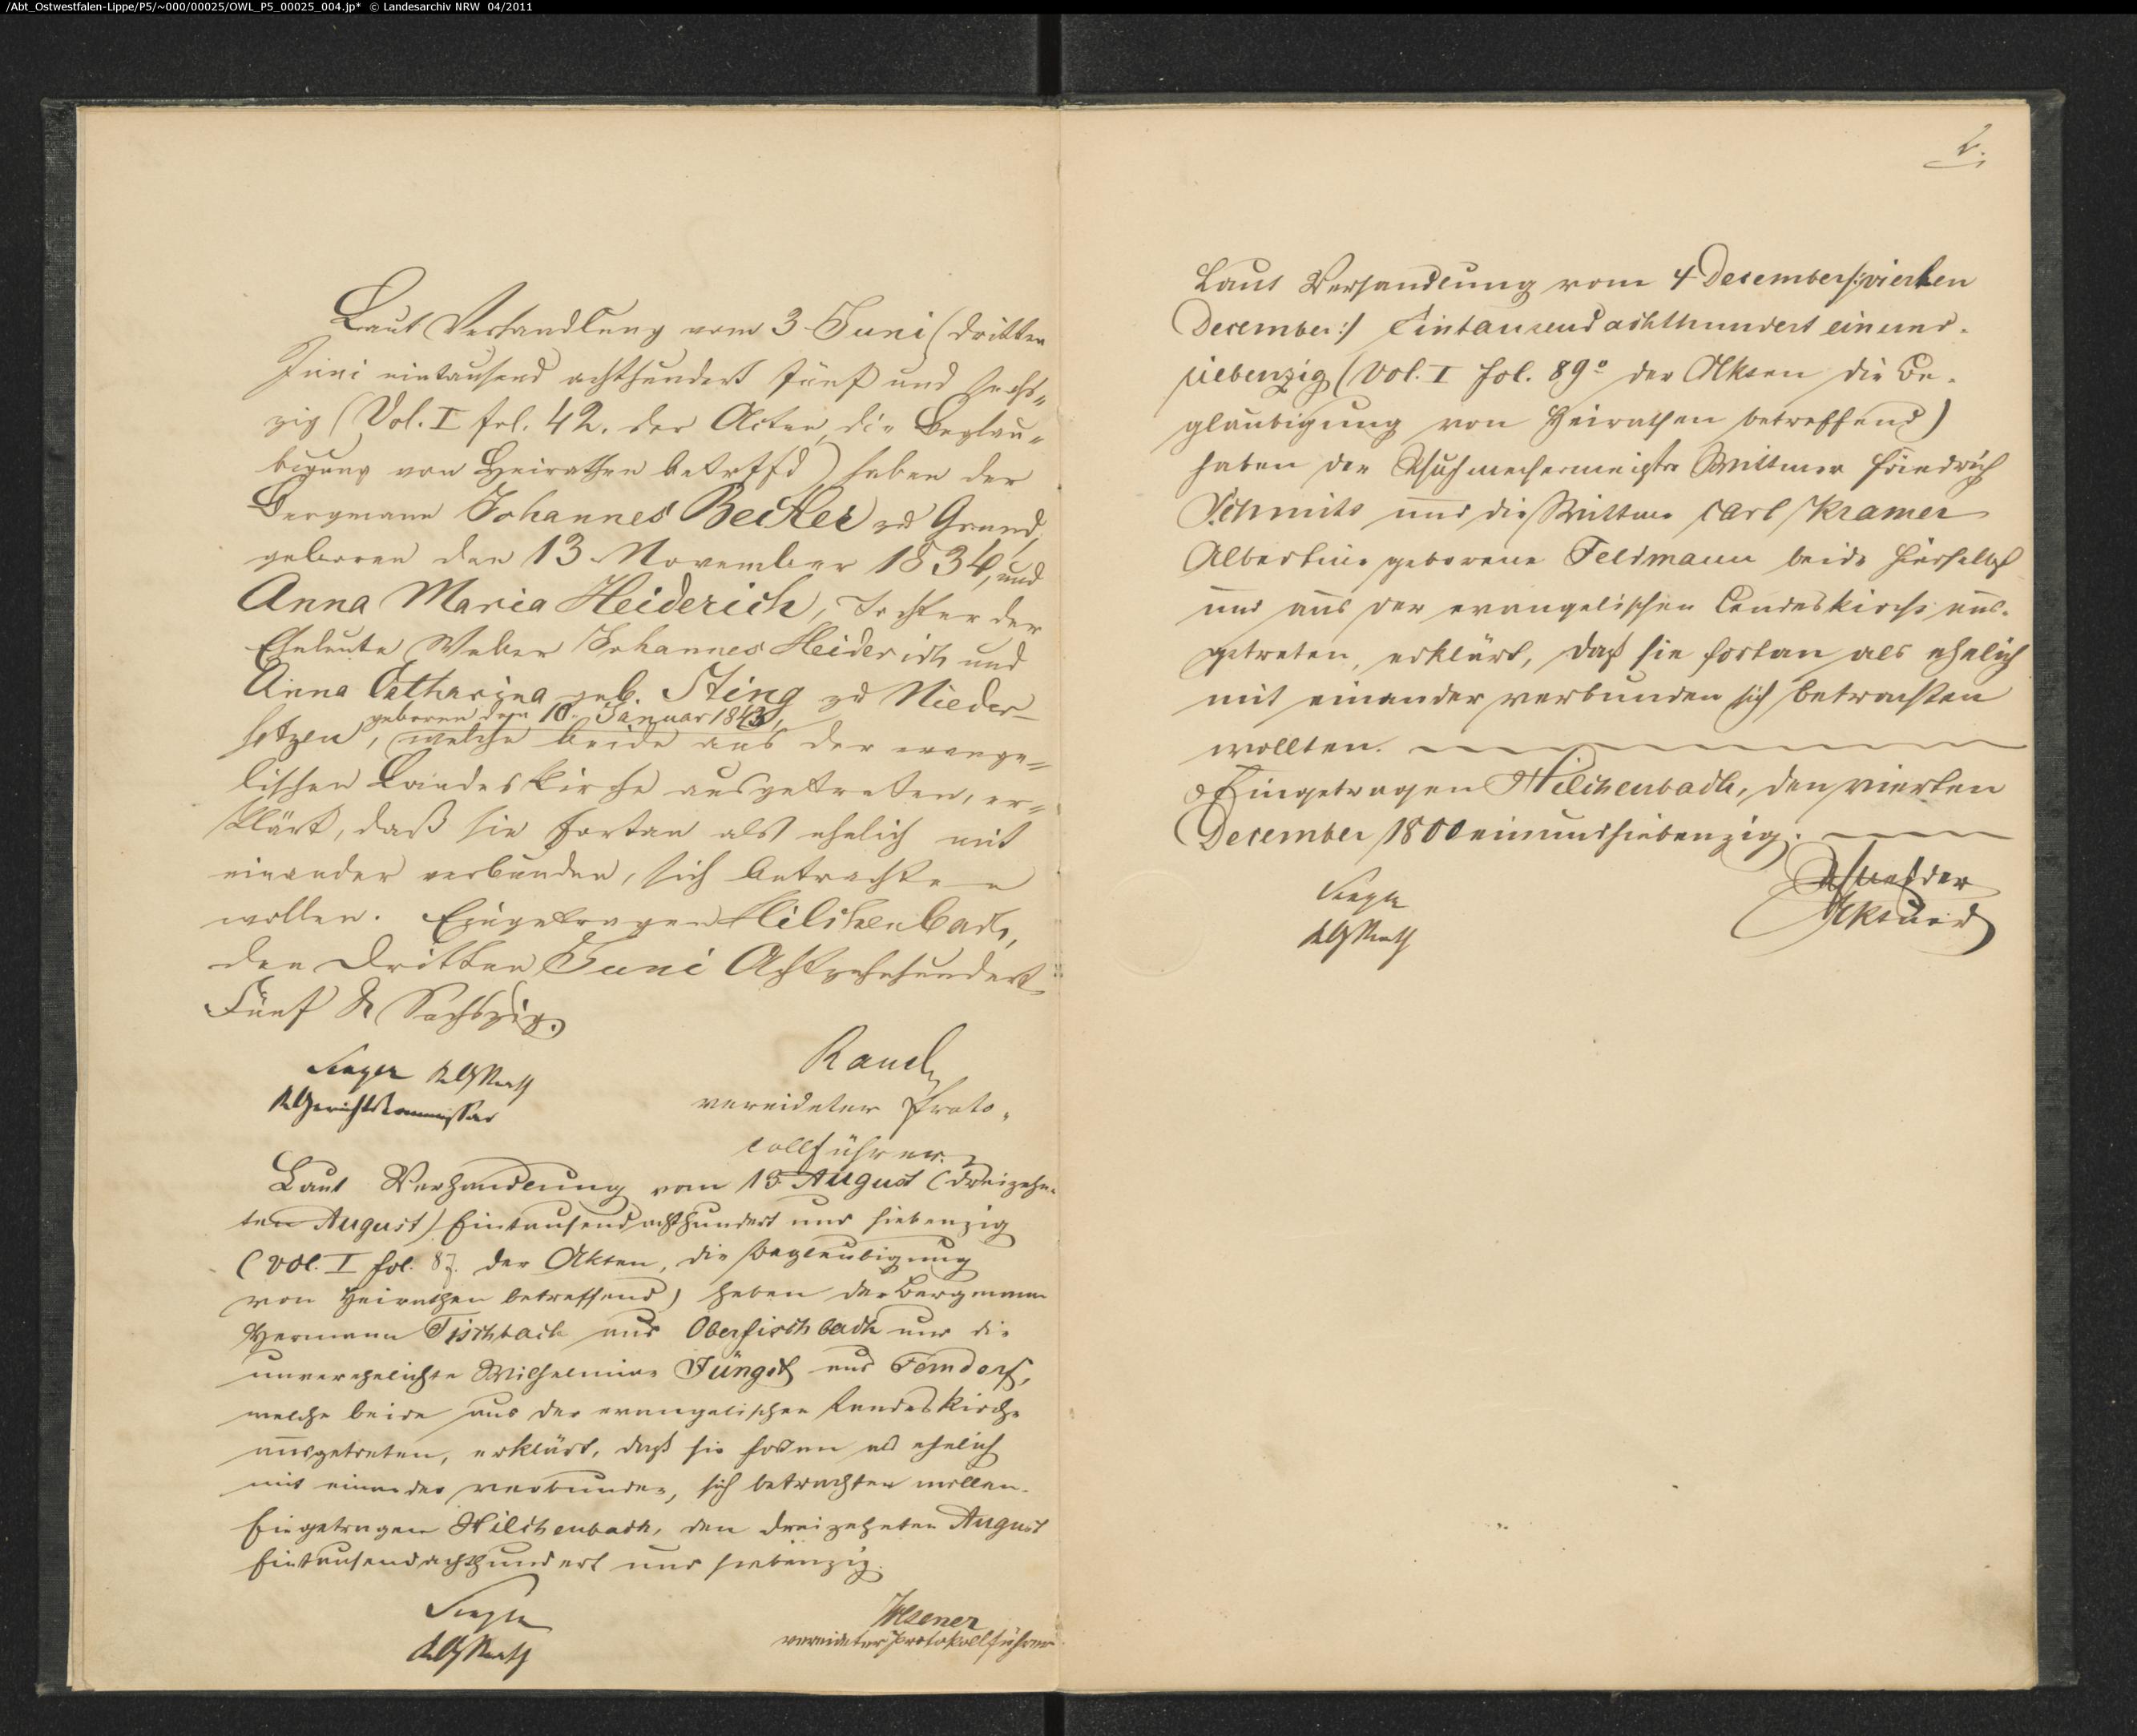 /Abt_Ostwestfalen-Lippe/P5/~000/00025/OWL_P5_00025_004.jp* © Landesarchiv NRW 04/2011
Laut Verhandlung vom 3 Juni (dritten
Juni eintausend achthundert fünf und sechs„
zig (Vol. I fol. 42. der Acten, die Beglau„
bigung von Heirathen betreffd) haben der
Bergmann Johannes Becker zu Grund,
geboren den 13 November 1834, und
Anna Maria Heiderich, Tochter der
Eheleute Weber Johannes Heiderich und
Anna Catharina geb. Sting zu Nieder-
geboren den 10. Januar 1843,
setzen, welche beide aus der evange=
lischen Landeskirche ausgetreten, er=
klärt, daß sie fortan als ehelich mit
einander verbunden, sich betrachten
wollen. Eingetragen Hilchenbach,
den dritten Juni Achtzehnhundert
Fünf & Sechszig.
KGerichtskommissar
Rauch
vereideter Proto„
collführer.
Laut Verhandlung vom 13 August (dreizehn-
ten August) Eintausendachthundert und siebenzig
(Vol. I fol. 87. der Akten, die Beglaubigung
von Heirathen betreffend) haben der Bergmann
Hermann Fischbach aus Oberfischbach und die
unverehelichte Wilhelmine Jüngst aus Ferndorf,
welche beide aus der evangelischen Landeskirche
ausgetreten, erklärt, daß sie fortan als ehelich
mit einander verbunden, sich betrachten wollen.
Eingetragen Hilchenbach, den dreizehnten August
Eintausendachthundert und siebenzig.
vereideter Protokollführer
2.
Laut Verhandlung vom 4 December /: vierten
December :/ Eintausend achthundert einund-
siebenzig (Vol. I fol. 89 der Akten die Be-
glaubigung von Heirathen betreffend)
haben der Schuhmachermeister Wittwer Friedrich
Schmits und die Wittwe Carl Kramer
Albertine geborene Feldmann beide hierselbst
und aus der evangelischen Landeskirche aus-
getreten, erklärt, daß sie fortan als ehelich
mit einander verbunden sich betrachten
wollten.
Eingetragen Hilchenbach, den vierten
December 1800 einundsiebenzig.
Aktuar